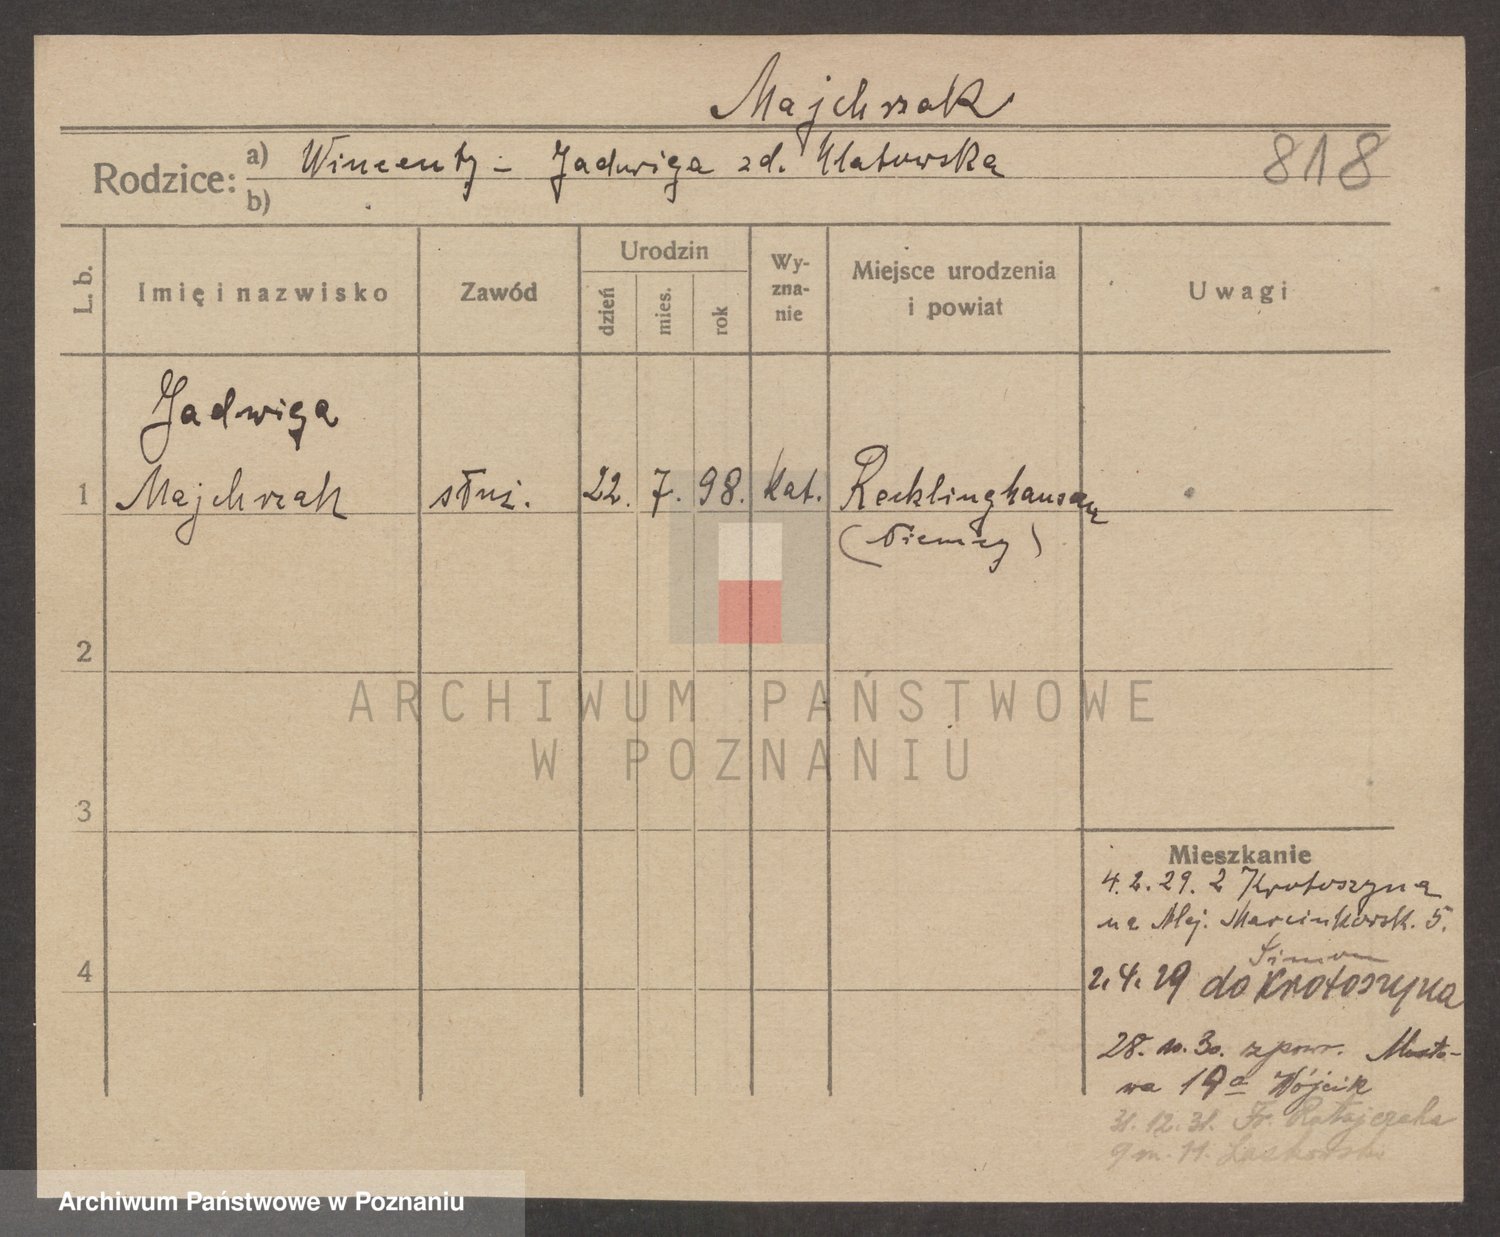 Majchrzak
Rodzice: a) Wincenty - Jadwiga zd. Klatowska
818
b)
L. b.
Imię i nazwisko
Zawód
Urodzin
dzień
mies.
rok
Wy-
zna-
nie
Miejsce urodzenia
i powiat
Uwagi
Jadwiga
1 Majchrzak służ. 22. 7. 98. kat. Recklinghausen
(Niemcy)
2
3
4
Mieszkanie
4. 2. 29. z Krotoszyna
na Alej. Marcinkowsk. 5.
Simon
2. 4. 29 do Krotoszyna
28. 10. 30. z powr. Mosto-
wa 19a Wójcik
31. 12. 31. Fr. Ratajczaka
9 m. 11. Laskowski
ARCHIWUM PAŃSTWOWE
W POZNANIU
Archiwum Państwowe w Poznaniu